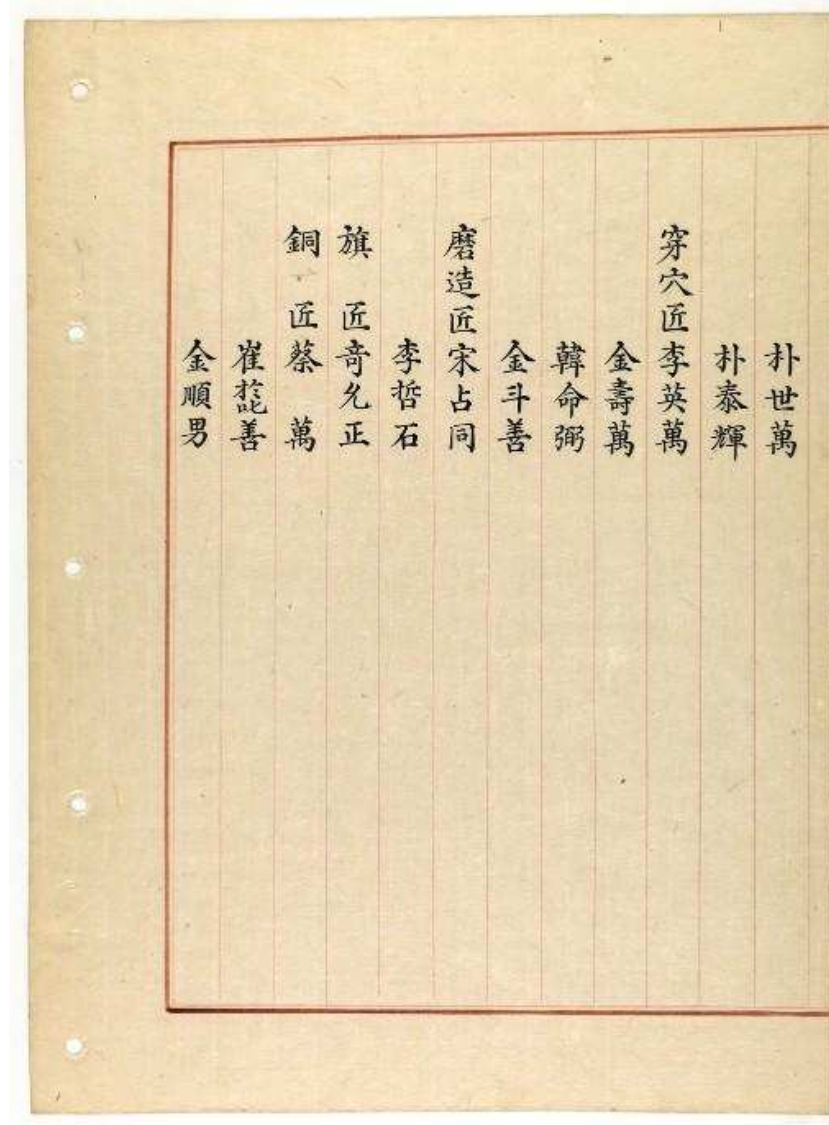 朴世萬
朴泰輝
穿穴匠李英萬
金壽萬
韓命弼
金斗善
磨造匠宋占同
李哲石
旗匠奇允正
銅匠蔡萬
崔善
金順男